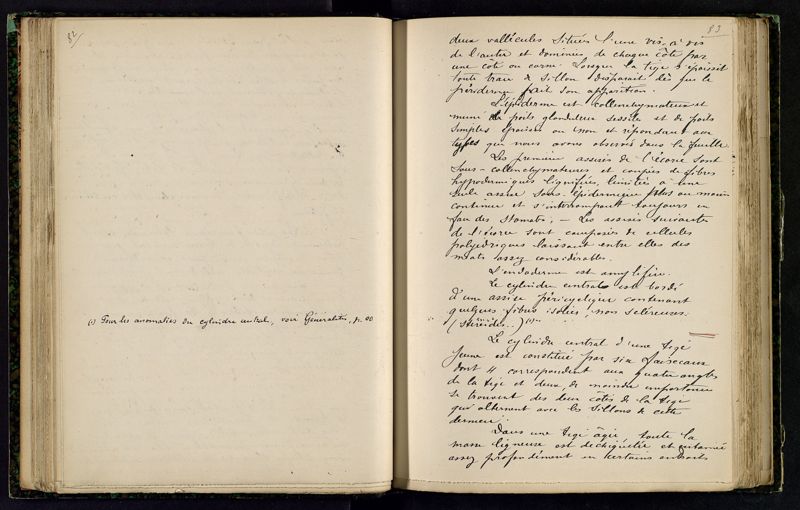 82
(1) Pour les anomalies du cylindre central, voir Généralités, p. 00
83
deux vallécules situées l'une vis-à-vis
de l'autre et dominées de chaque côté par
une côte ou corne. Lorsque la tige s'épaissit
toute trace de sillon disparaît dès que le
périderme fait son apparition.
L'épiderme est collenchymateux et
muni de poils glanduleux sessiles et de poils
simples épaissis ou non et répondant aux
types que nous avons observés dans la feuille.
Les premières assises de l'écorce sont
sous-collenchymateuses et coupées de fibres
hypodermiques lignifiées, limitées à une
seule assise sous-épidermique plus ou moins
continue et s'interrompant toujours en
face des stomates. — Les assises suivantes
de l'écorce sont composées de cellules
polyédriques laissant entre elles des
méats assez considérables.
L'endoderme est amylifère.
Le cylindre central est bordé
d'une assise péricyclique contenant
quelques fibres isolées, non scléreuses.
(stéréides..)(1)
Le cylindre central d'une tige
jeune est constitué par six faisceaux
dont 4 correspondent aux quatre angles
de la tige et deux, de moindre importance
se trouvent des deux côtés de la tige
qui alternent avec les sillons de cette
dernière.
Dans une tige âgée, toute la
masse ligneuse est déchiquetée et entamée
assez profondément en certains endroits